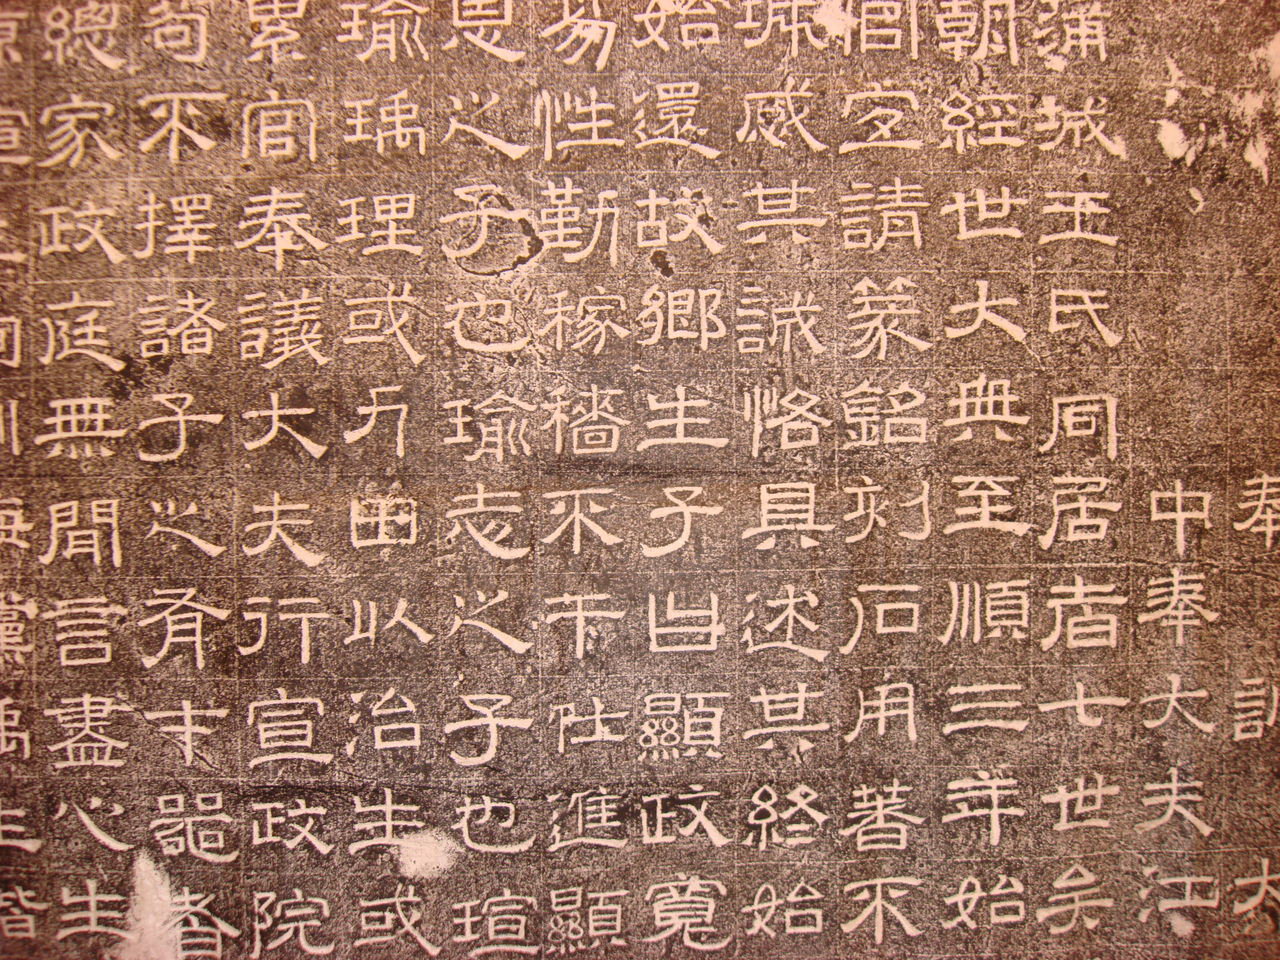 奉訓大
中奉大夫江
蒲城王氏同居者七世矣
朝經世大典至順三年始
官定請篆銘刻石用著不
珹感其誠恪具述其終始
始還故鄉生子曰顯政寬
易性勤稼穡不干仕進顯
恩之子也瑜志之子也瑄
瑜瑀理或力田以治生或
累官奉議大夫行宣政院
苟不擇諸子之有才器者
總家政庭無間言盡心生